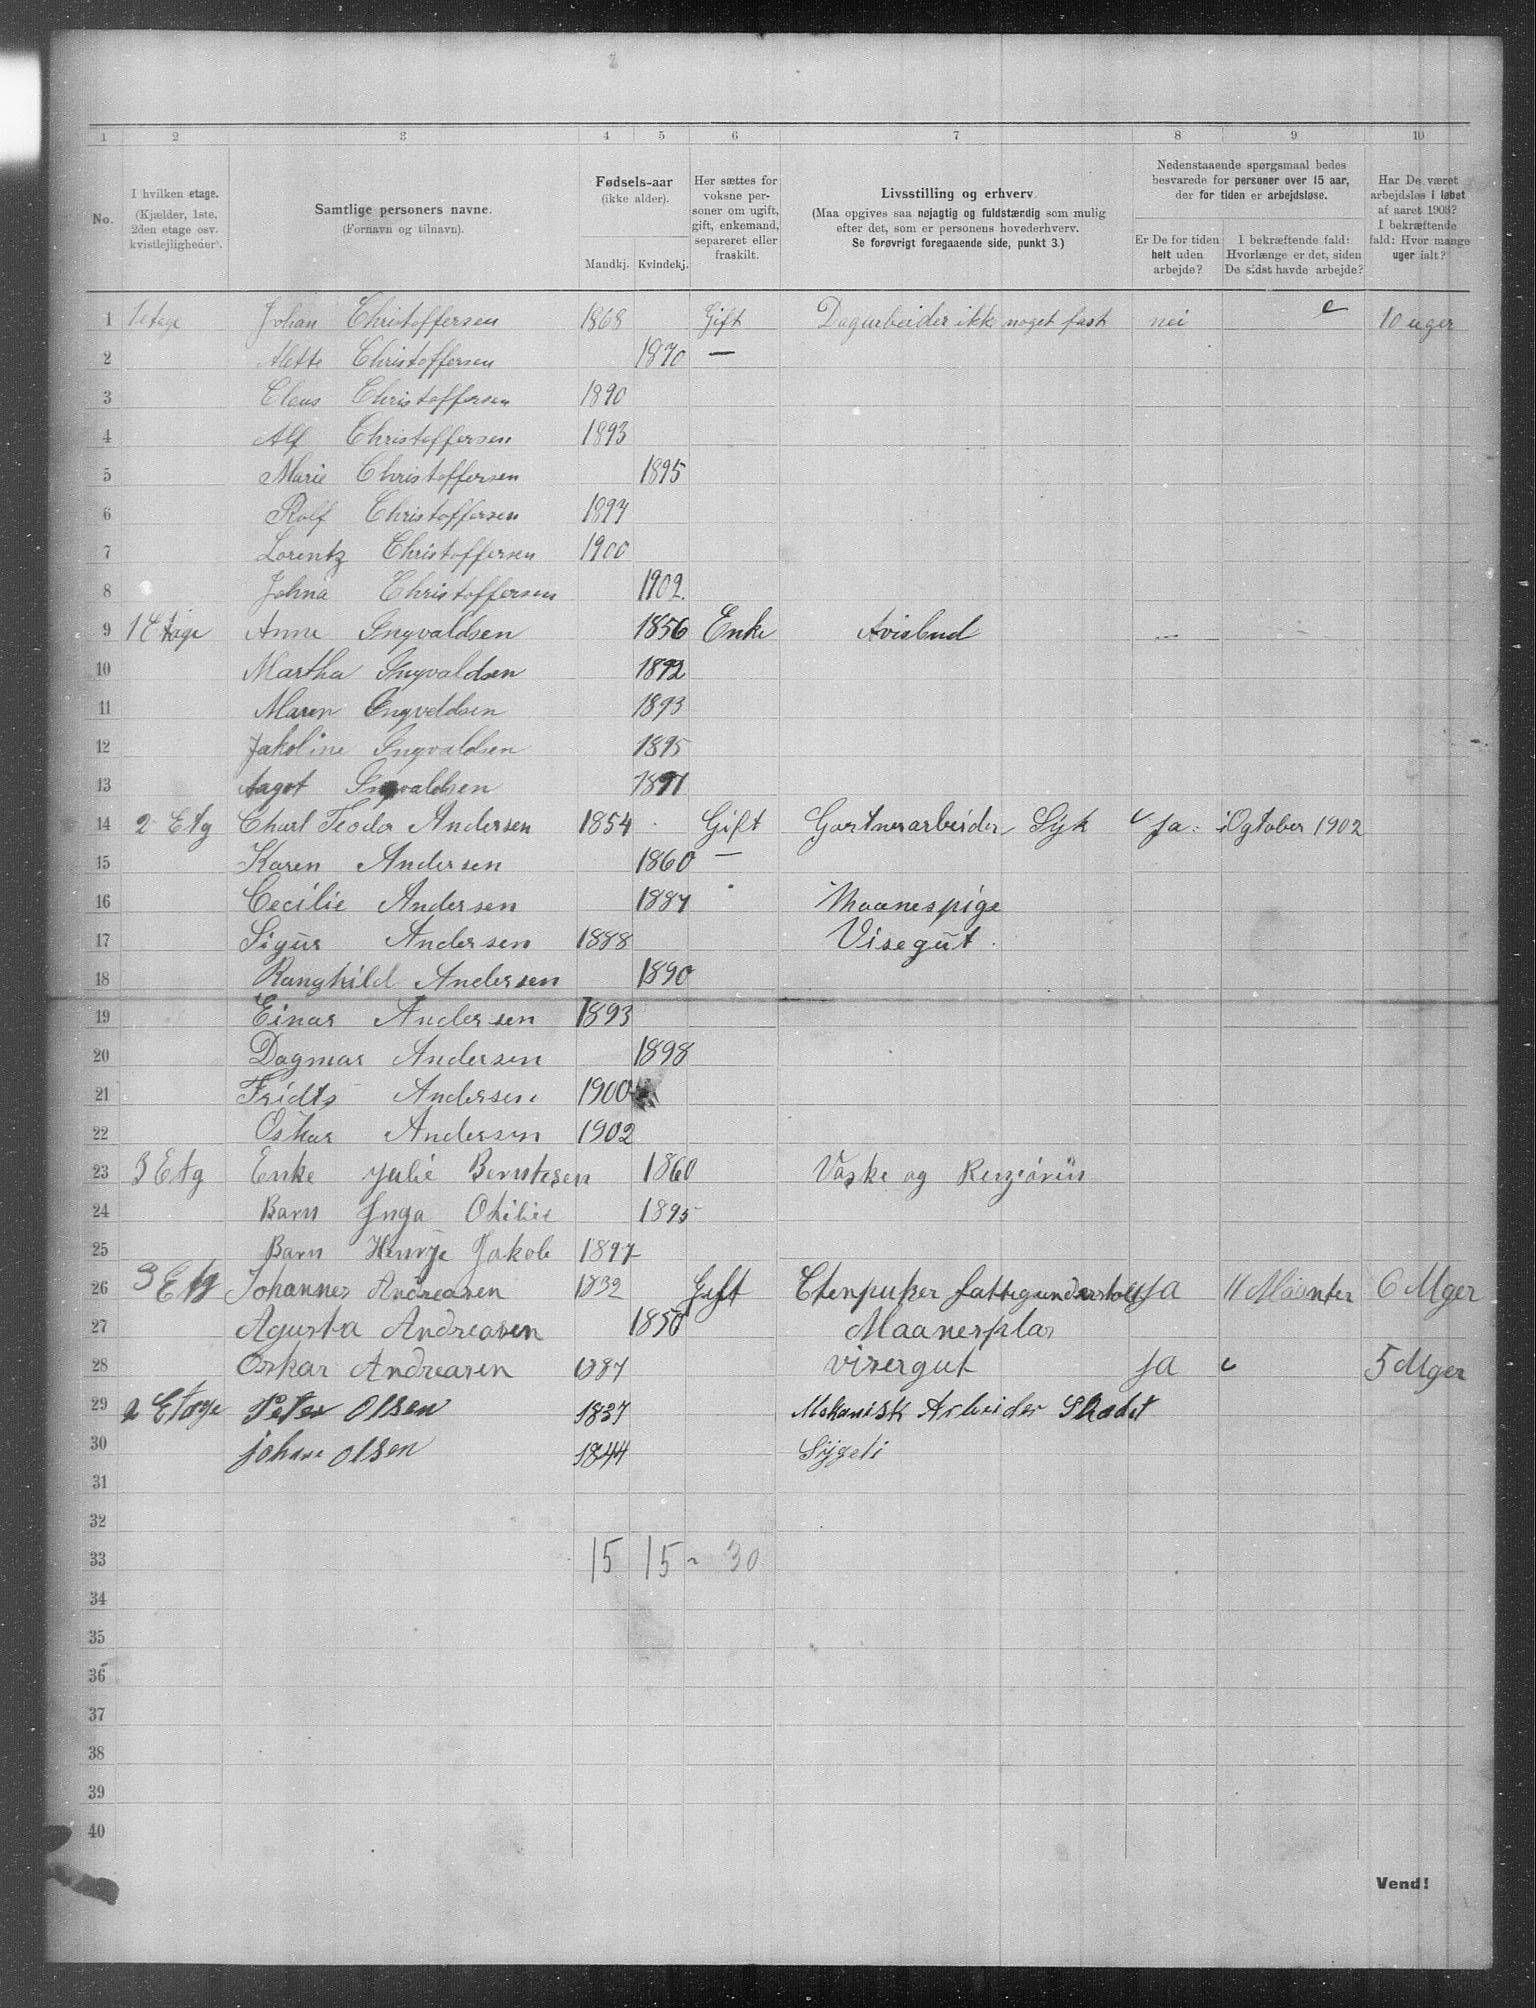 1 2 3 4 5 6 7 8 9 10
No.
I hvilken etage. (Kjælder, 1ste, 2den etage osv. kvistlejligheder).
Samtlige personers navne. (Fornavn og tilnavn).
Fødsels-aar (ikke alder).
Mandkj. Kvindekj.
Her sættes for voksne personer om ugift, gift, enkemand, separeret eller fraskilt.
Livsstilling og erhverv. (Maa opgives saa nøjagtig og fuldstændig som mulig efter det, som er personens hovederhverv. Se forøvrigt foregaaende side, punkt 3.)
Nedenstaaende spørgsmaal bedes besvarede for personer over 15 aar, der for tiden er arbejdsløse.
Er De for tiden helt uden arbejde?
I bekræftende fald: Hvorlænge er det, siden De sidst havde arbejde?
Har De været arbejdsløs i løbet af aaret 1903? I bekræftende fald: Hvor mange uger ialt?
1 1 etage Johan Christoffersen 1868 Gift Dagarbeider ikke noget fast nei 10 uger
2 Mette Christoffersen 1870 —
3 Claus Christoffersen 1890
4 Alf Christoffersen 1893
5 Marie Christoffersen 1895
6 Rolf Christoffersen 1897
7 Lorentz Christoffersen 1900
8 Johna Christoffersen 1902.
9 1 Etage Anne Ingvaldsen 1856 Enke Avisbud
10 Martha Ingvaldsen 1892
11 Maren Engveldsen 1893
12 Jakoline Ingvaldsen 1895
13 Aagot Ingvaldsen
14 2 Etg Charl Teodor Andersen 1854 Gift Gartnerarbeider Syk Ja: i Ogtober 1902
15 Karen Andersen 1860 —
16 Cecilie Andersen 1887 Maanespige
17 Sigur Andersen 1888 Visegut.
18 Ranghild Andersen 1890
19 Einar Andersen 1893
20 Dagmar Andersen 1898
21 Fridts Andersen 1900
22 Oskar Andersen 1902
23 3 Etg Enke Julie Berntesen 1860 Vaske og
24 Barn Inga Otilie 1895
25 Barn Henrye Jakob 1897
26 3 Etg Johannes Andreasen 1832 Gift JA 11 Maanter 6 Uger
27 Agusta Andreasen 1850 Maanesplas
28 Oskar Andreasen 1887 visergut JA 5 Uger
29 2 Etage Peter Olsen 1837 Mekanisk Arbeider Skadet
30 Johane Olsen 1844
31
32
33 15 15 - 30
34
35
36
37
38
39
40
Vend!